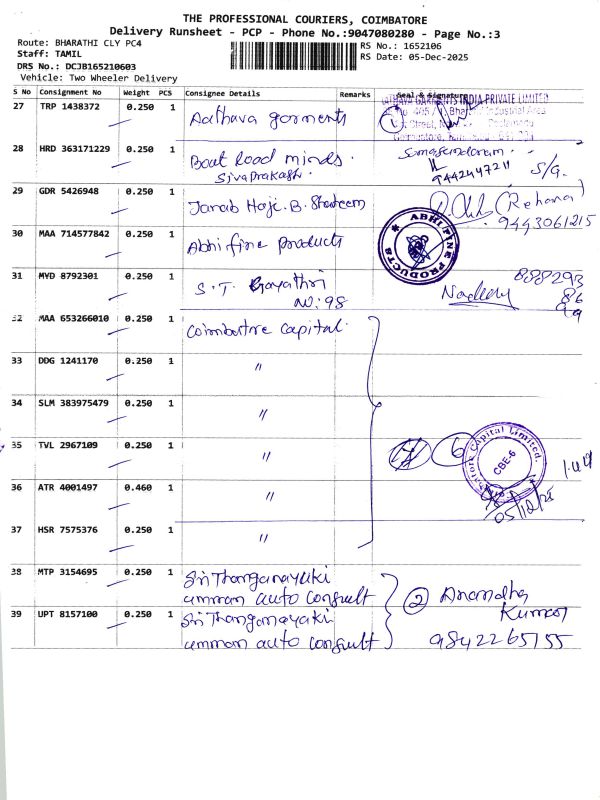 THE PROFESSIONAL COURIERS, COIMBATORE
Delivery Runsheet - PCP - Phone No.:9047080280 - Page No.:3
Route: BHARATHI CLY PC4
Staff: TAMIL
DRS No.: DCJB165210603
Vehicle: Two Wheeler Delivery
RS No.: 1652106
RS Date: 05-Dec-2025
S No Consignment No Weight PCS Consignee Details Remarks Seal & Signature
27 TRP 1438372 0.250 1 Aathava garments 1
GARMENTS INDIA PRIVATE LIMITED
Industrial Area
Street,
28 HRD 363171229 0.250 1 Boat Road minds.
Sivaprakash.
Somasundaram.
9442447211 S/G.
29 GDR 5426948 0.250 1 Janab Haji. B. (Rehana)
9443061215
30 MAA 714577842 0.250 1 Abhi fine products
ABHI FINE PRODUCTS
31 MYD 8792301 0.250 1 S.T. Gayathri
NO: 98
888293
86
99
32 MAA 653266010 0.250 1 Coimbatore Capital.
33 DDG 1241170 0.250 1 "
34 SLM 383975479 0.250 1 "
35 TVL 2967109 0.250 1 " 6
Capital Limited
CBE-6
36 ATR 4001497 0.460 1 "
05/12/25
37 HSR 7575376 0.250 1 "
38 MTP 3154695 0.250 1 Sri Thanganayaki
amman auto consult
2 Anandha
Kumar
39 UPT 8157100 0.250 1 Sri Thanganayaki
amman auto consult
9842265155